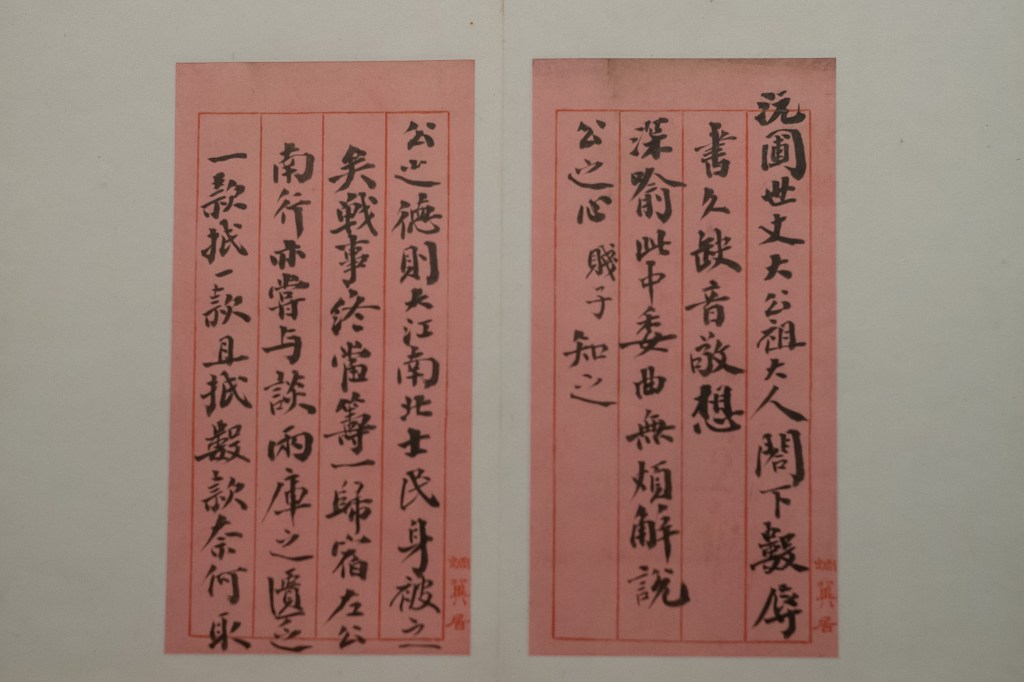 沅圃世丈大公祖大人閣下數辱
書久缺音敬想
深喻此中委曲無煩解說
公之心 賤子知之
公之德則大江南北士民身被之
矣戰事終當籌一歸宿左公
南行亦嘗与談兩庫之匱乏
一款抵一款且抵數款奈何取